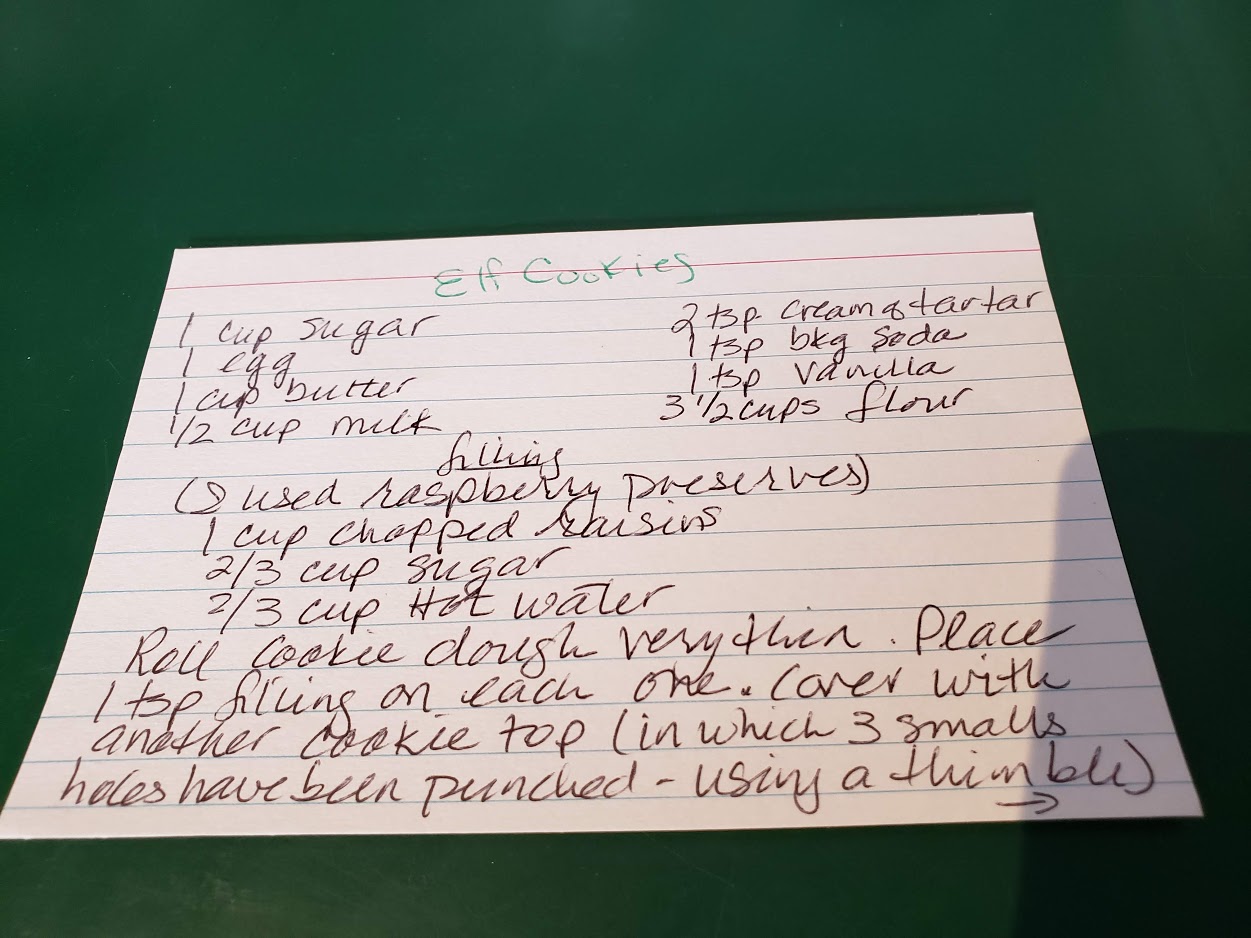 Elf Cookies
1 cup sugar
1 egg
1 cup butter
1/2 cup milk
2 tsp cream of tartar
1 tsp bkg soda
1 tsp vanilla
3 1/2 cups flour
filling
(I used raspberry preserves)
1 cup chopped raisins
2/3 cup sugar
2/3 cup Hot water
Roll cookie dough very thin. Place
1 tsp filling on each one. Cover with
another cookie top (in which 3 smalls
holes have been punched - using a thimble)
→